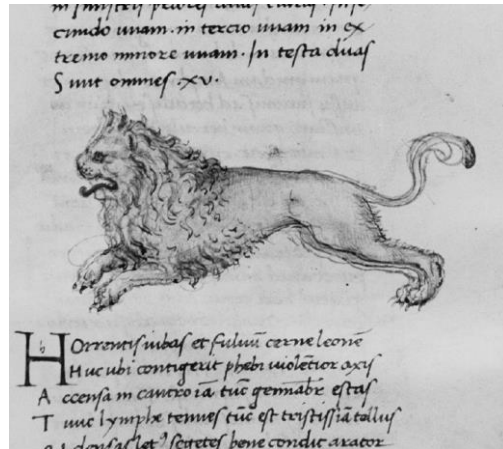 cundo unam. in tercio unam in ex
tremo minore unam. In testa duas
Sunt omnes .xv.
Horrentis iubas et fuluum cerne leonē
Huc ubi contigerit phebi uiolentior axis
Accensa in cancro iā tūc geminabr̄ estas
Tunc lymphe tenues tūc est tristissīa tellus
segetes bene condit arator